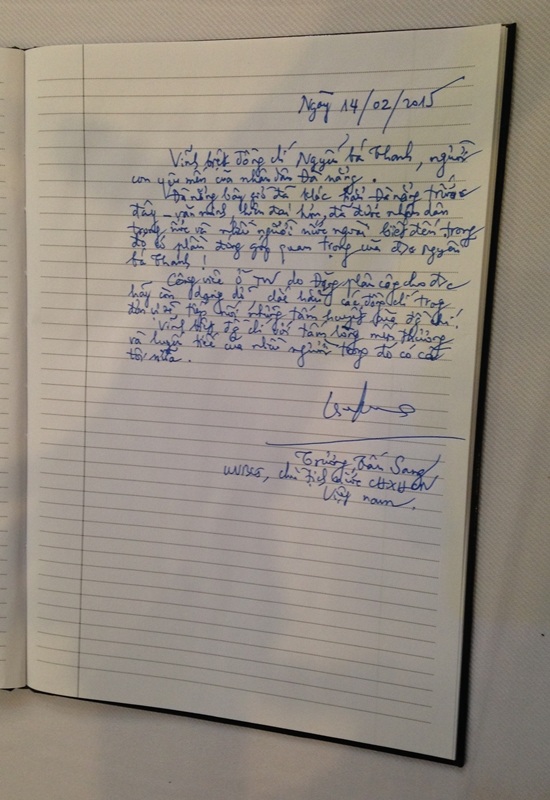 Ngày 14/02/2015
Vĩnh biệt đồng chí Nguyễn bá Thanh, người
con yêu mến của nhân dân Đà nẵng.
Đà nẵng bây giờ đã khác trước
đây - văn minh hiện đại hơn, đã được nhân dân
trong nước và nhiều người nước ngoài biết đến trong
đó có phần đóng góp quan trọng của đ/c nguyễn
bá Thanh!
Công việc ở TW do Đảng phân công cho đ/c
hãy còn dang dở các đồng chí trong
tiếp nối những tâm huyết của đ/c!
Vĩnh biệt đ/c với tấm lòng mến thương
và luyến tiếc của nhiều người trong đó có cả
tôi nữa.
Trương Tấn Sang
UVBCT, chủ tịch nước CHXHCN
Việt nam.